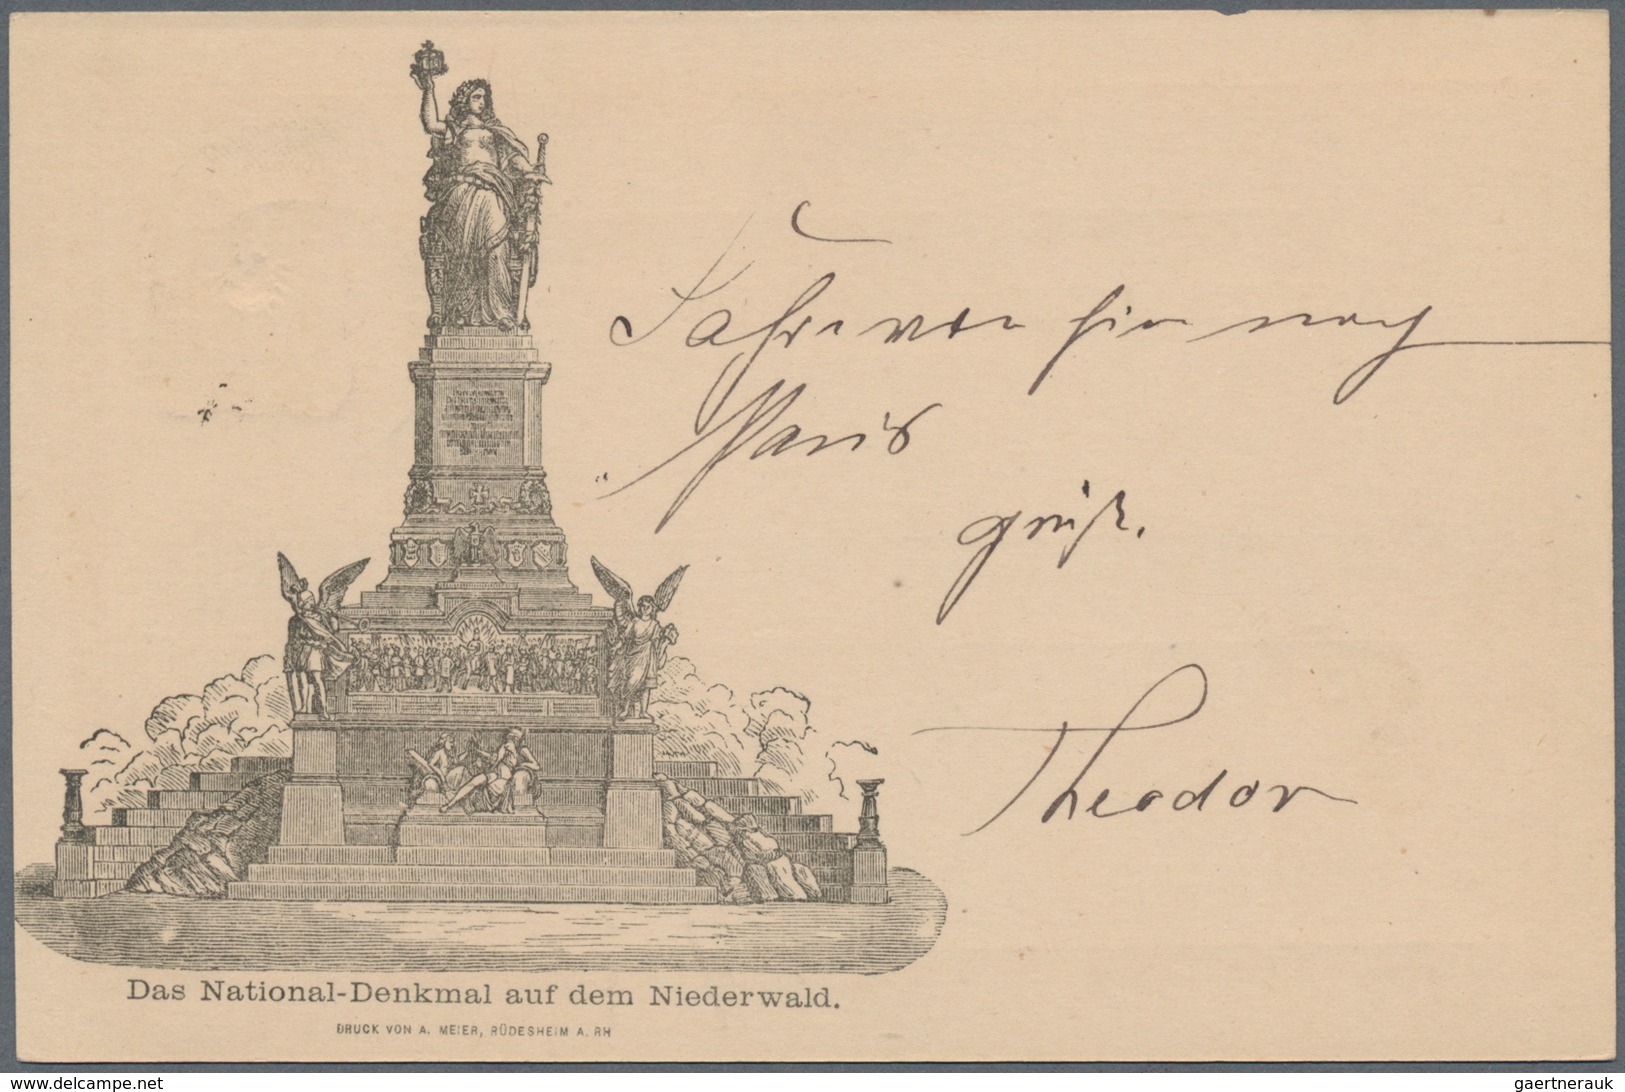 Fahre von hier nach
Paris
grüßt.
Theodor
Das National-Denkmal auf dem Niederwald.
DRUCK VON A. MEIER, RÜDESHEIM A. RH
www.delcampe.net
gaertnerauk